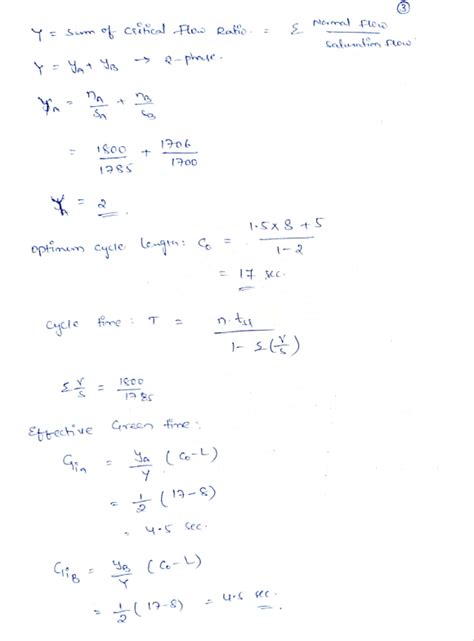 ③
Y = Sum of Critical Flow Ratio = Σ Normal Flow / Saturation Flow
Y = yA + yB → 2-phase.
YA = nA/SA + nB/SB
= 1800/1785 + 1706/1700
Y = 2
Optimum Cycle Length: C0 = 1.5×8+5 / 1-2
= 17 sec.
Cycle time: T = n.tsl / 1- Σ(V/S)
Σ V/S = 1800/1785
Effective Green time:
GiA = yA/Y (C0-L)
= 1/2 (17-8)
= 4.5 sec.
GiB = yB/Y (C0-L)
= 1/2 (17-8) = 4.5 sec.